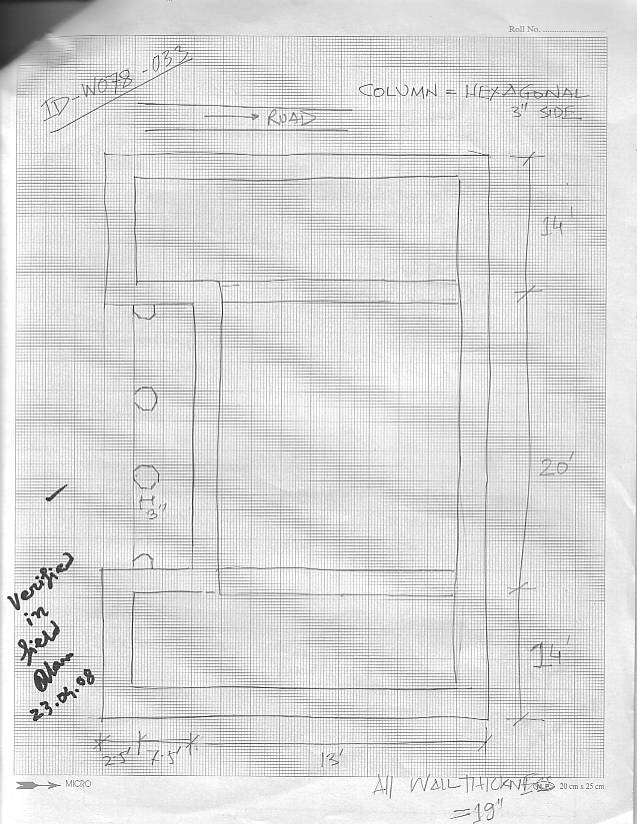 Roll No.
ID-W078-033
COLUMN = HEXAGONAL
3" SIDE
ROAD
14'
20'
3"
Verified
in
field
23.09.08
14'
2.5' 7.5' 13'
MICRO
All WALL THICKNESS
20 cm x 25 cm
=19"